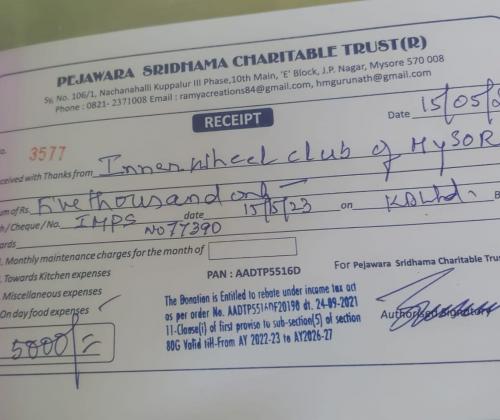 PEJAWARA SRIDHAMA CHARITABLE TRUST(R)
Sy. No. 106/1, Nachanahalli Kuppalur III Phase,10th Main, 'E' Block, J.P. Nagar, Mysore 570 008
Phone : 0821- 2371008 Email : ramyacreations84@gmail.com, hmgurunath@gmail.com
RECEIPT
Date 15/05/
No. 3577
eceived with Thanks from Inner wheel club of MYSOR
um of Rs. Five thousand only
h / Cheque / No. IMPS date 15/5/23 on
No 77390
ards
. Monthly maintenance charges for the month of
. Towards Kitchen expenses
. Miscellaneous expenses
On day food expenses ✓
PAN : AADTP5516D
For Pejawara Sridhama Charitable Trus
The Donation is Entitled to rebate under income tax act
as per order No. AADTP5516DF20190 dt. 24-09-2021
11-Clause(i) of first proviso to sub-section(5) of section
80G Valid till-From AY 2022-23 to AY2026-27
Authorised Signatory
5000/=